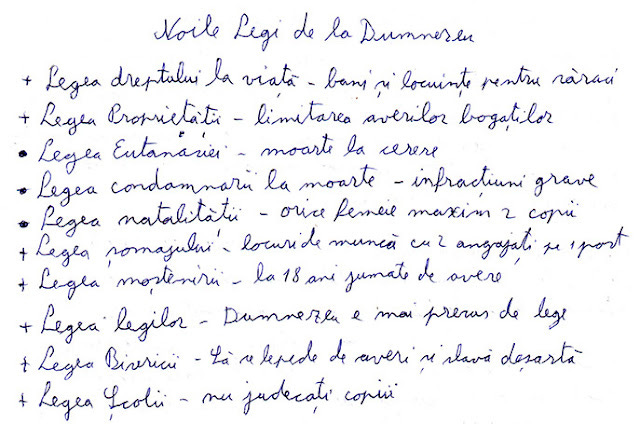 Noile Legi de la Dumnezeu
+ Legea dreptului la viață - bani și locuințe pentru săraci
+ Legea Proprietății - limitarea averilor bogaților
• Legea Eutanăziei - moarte la cerere
• Legea condamnării la moarte - infracțiuni grave
• Legea natalității - orice femeie maxim 2 copii
+ Legea șomajului - locuri de muncă cu 2 angajați pe 1 post
+ Legea moștenirii - la 18 ani jumate de avere
+ Legea legilor - Dumnezeu e mai presus de lege
+ Legea Bisericii - Să se lepede de averi și slavă deșartă
+ Legea Școlii - nu judecați copiii